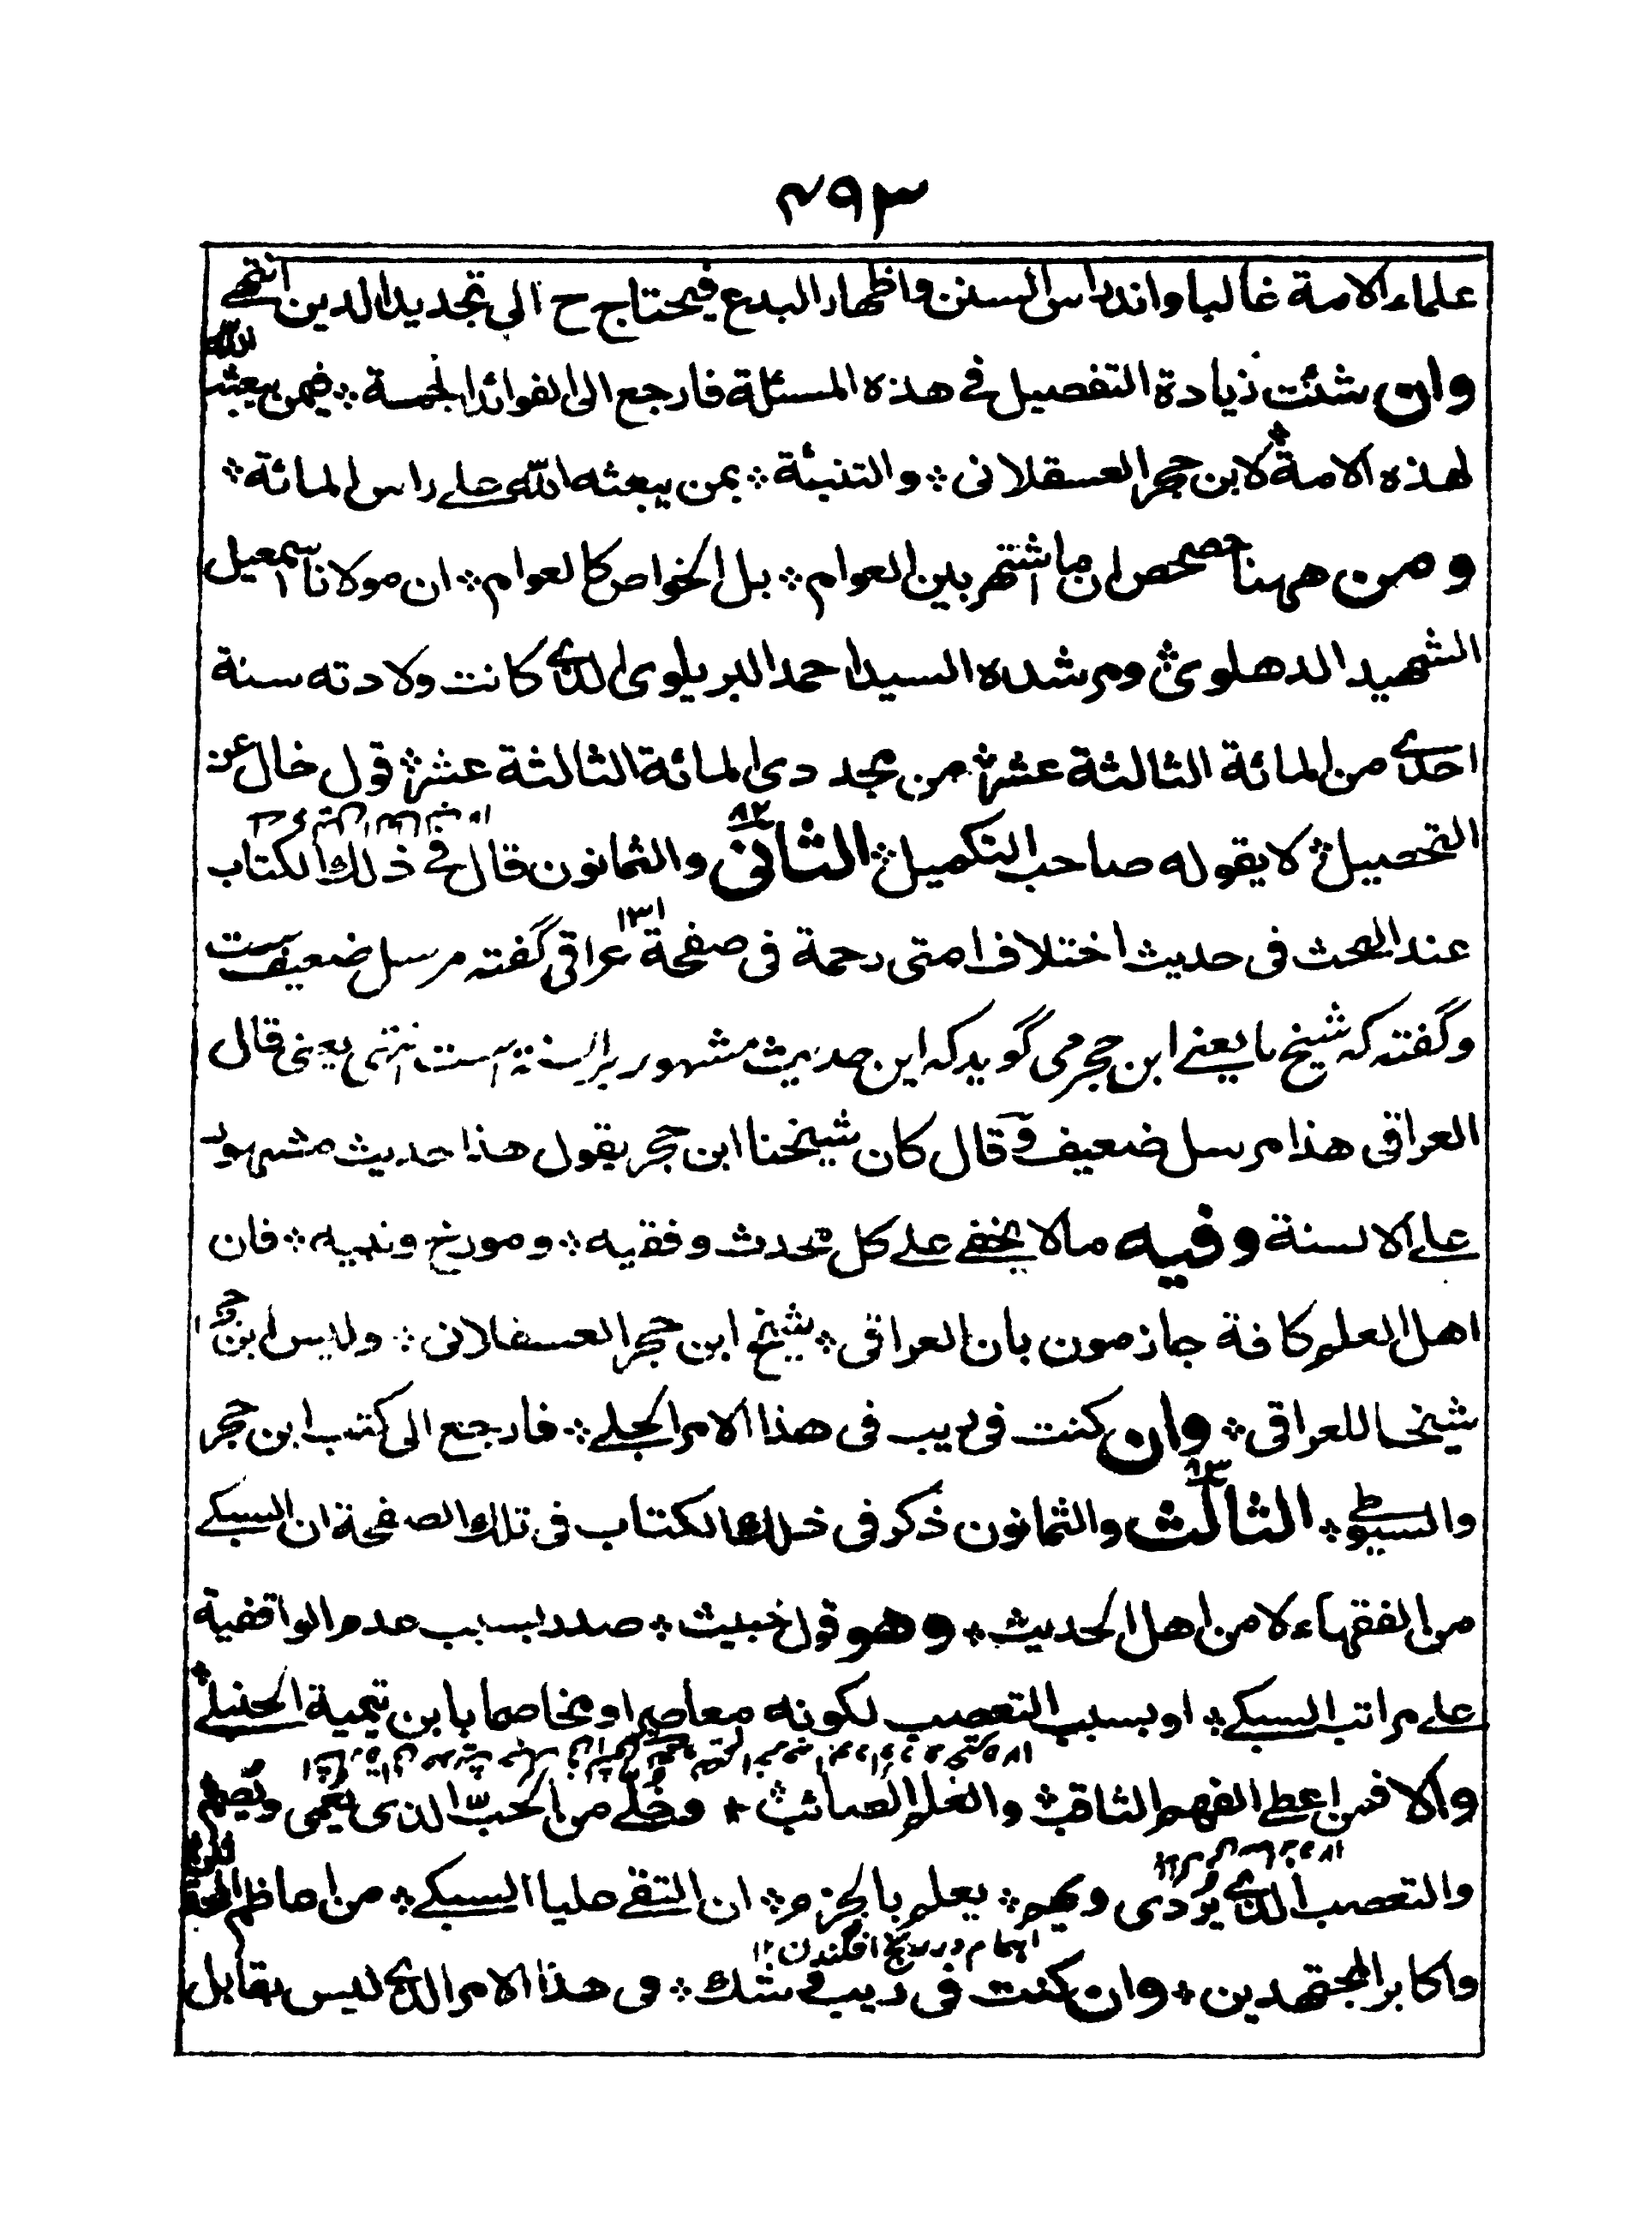 ٤٩٣
علماء الامة غالبا واندراس السنن واظهار البدع فيحتاج ح الى تجديد الدين انتهى
وان شئت زيادة التفصيل في هذه المسئلة فارجع الى الفوائد الجمسة ∴ فيمن يبعث الله
لهذه الامة ∴ لابن حجر العسقلانى ∴ والتنبئة ∴ بمن يبعثه الله على راس المائة ∴
ومن ههنا حصحص ان ما اشتهر بين العوام ∴ بل الخواص كالعوام ∴ ان مولانا اسمعيل
الشهيد الدهلوى ∴ ومرشده السيد احمد البريلوى الذى كانت ولادته سنة
احدى من المائة الثالثة عشر ∴ من مجددى المائة الثالثة عشر ∴ قول خال عن
التحصيل ∴ لا يقوله صاحب التكميل ∴ الثانى ٨٢ والثمانون قال فى ذلك الكتاب
عند البحث فى حديث اختلاف امتى رحمة فى صفحة ١٣١ عراقى گفته مرسل ضعيف ست
وگفته كه شيخ ما يعنے ابن حجر مى گويد كه اين حديث مشهور بر السنة است انتهى يعنى قال
العراقى هذا مرسل ضعيف وقال كان شيخنا ابن حجر يقول هذا حديث مشهور
على الالسنة وفيه مالا يخفى على كل محدث وفقيه ∴ ومورخ ونبيه ∴ فان
اهل العلم كافة جازمون بان العراقى ∴ شيخ ابن حجر العسقلانى ∴ وليس ابن حجر
شيخا للعراقى ∴ وان كنت فى ريب فى هذا الامر الجلى ∴ فارجع الى كتب ابن حجر
والسيوطى ∴ الثالث ٨٣ والثمانون ذكر فى ذلك الكتاب فى تلك الصفحة ان السبكى
من الفقهاء لا من اهل الحديث ∴ وهو قول خبيث ∴ صدر بسبب عدم الواقفية
على مراتب السبكى ∴ او بسبب التعصب لكونه معاصرا ومخاصما بابن تيمية الحنبلى ∴
والا فمن اعطى الفهم الثاقب ∴ والعلم الصائب ∴ وخلى من الحب الذى يعمى ويصم
والتعصب الذى يردى ويهم ∴ يعلم بالجزم ∴ ان التقى عليا السبكى ∴ من اعاظم
واكابر المجتهدين ∴ وان كنت فى ريب وشك ∴ فى هذا الامر الذى ليس بقابل